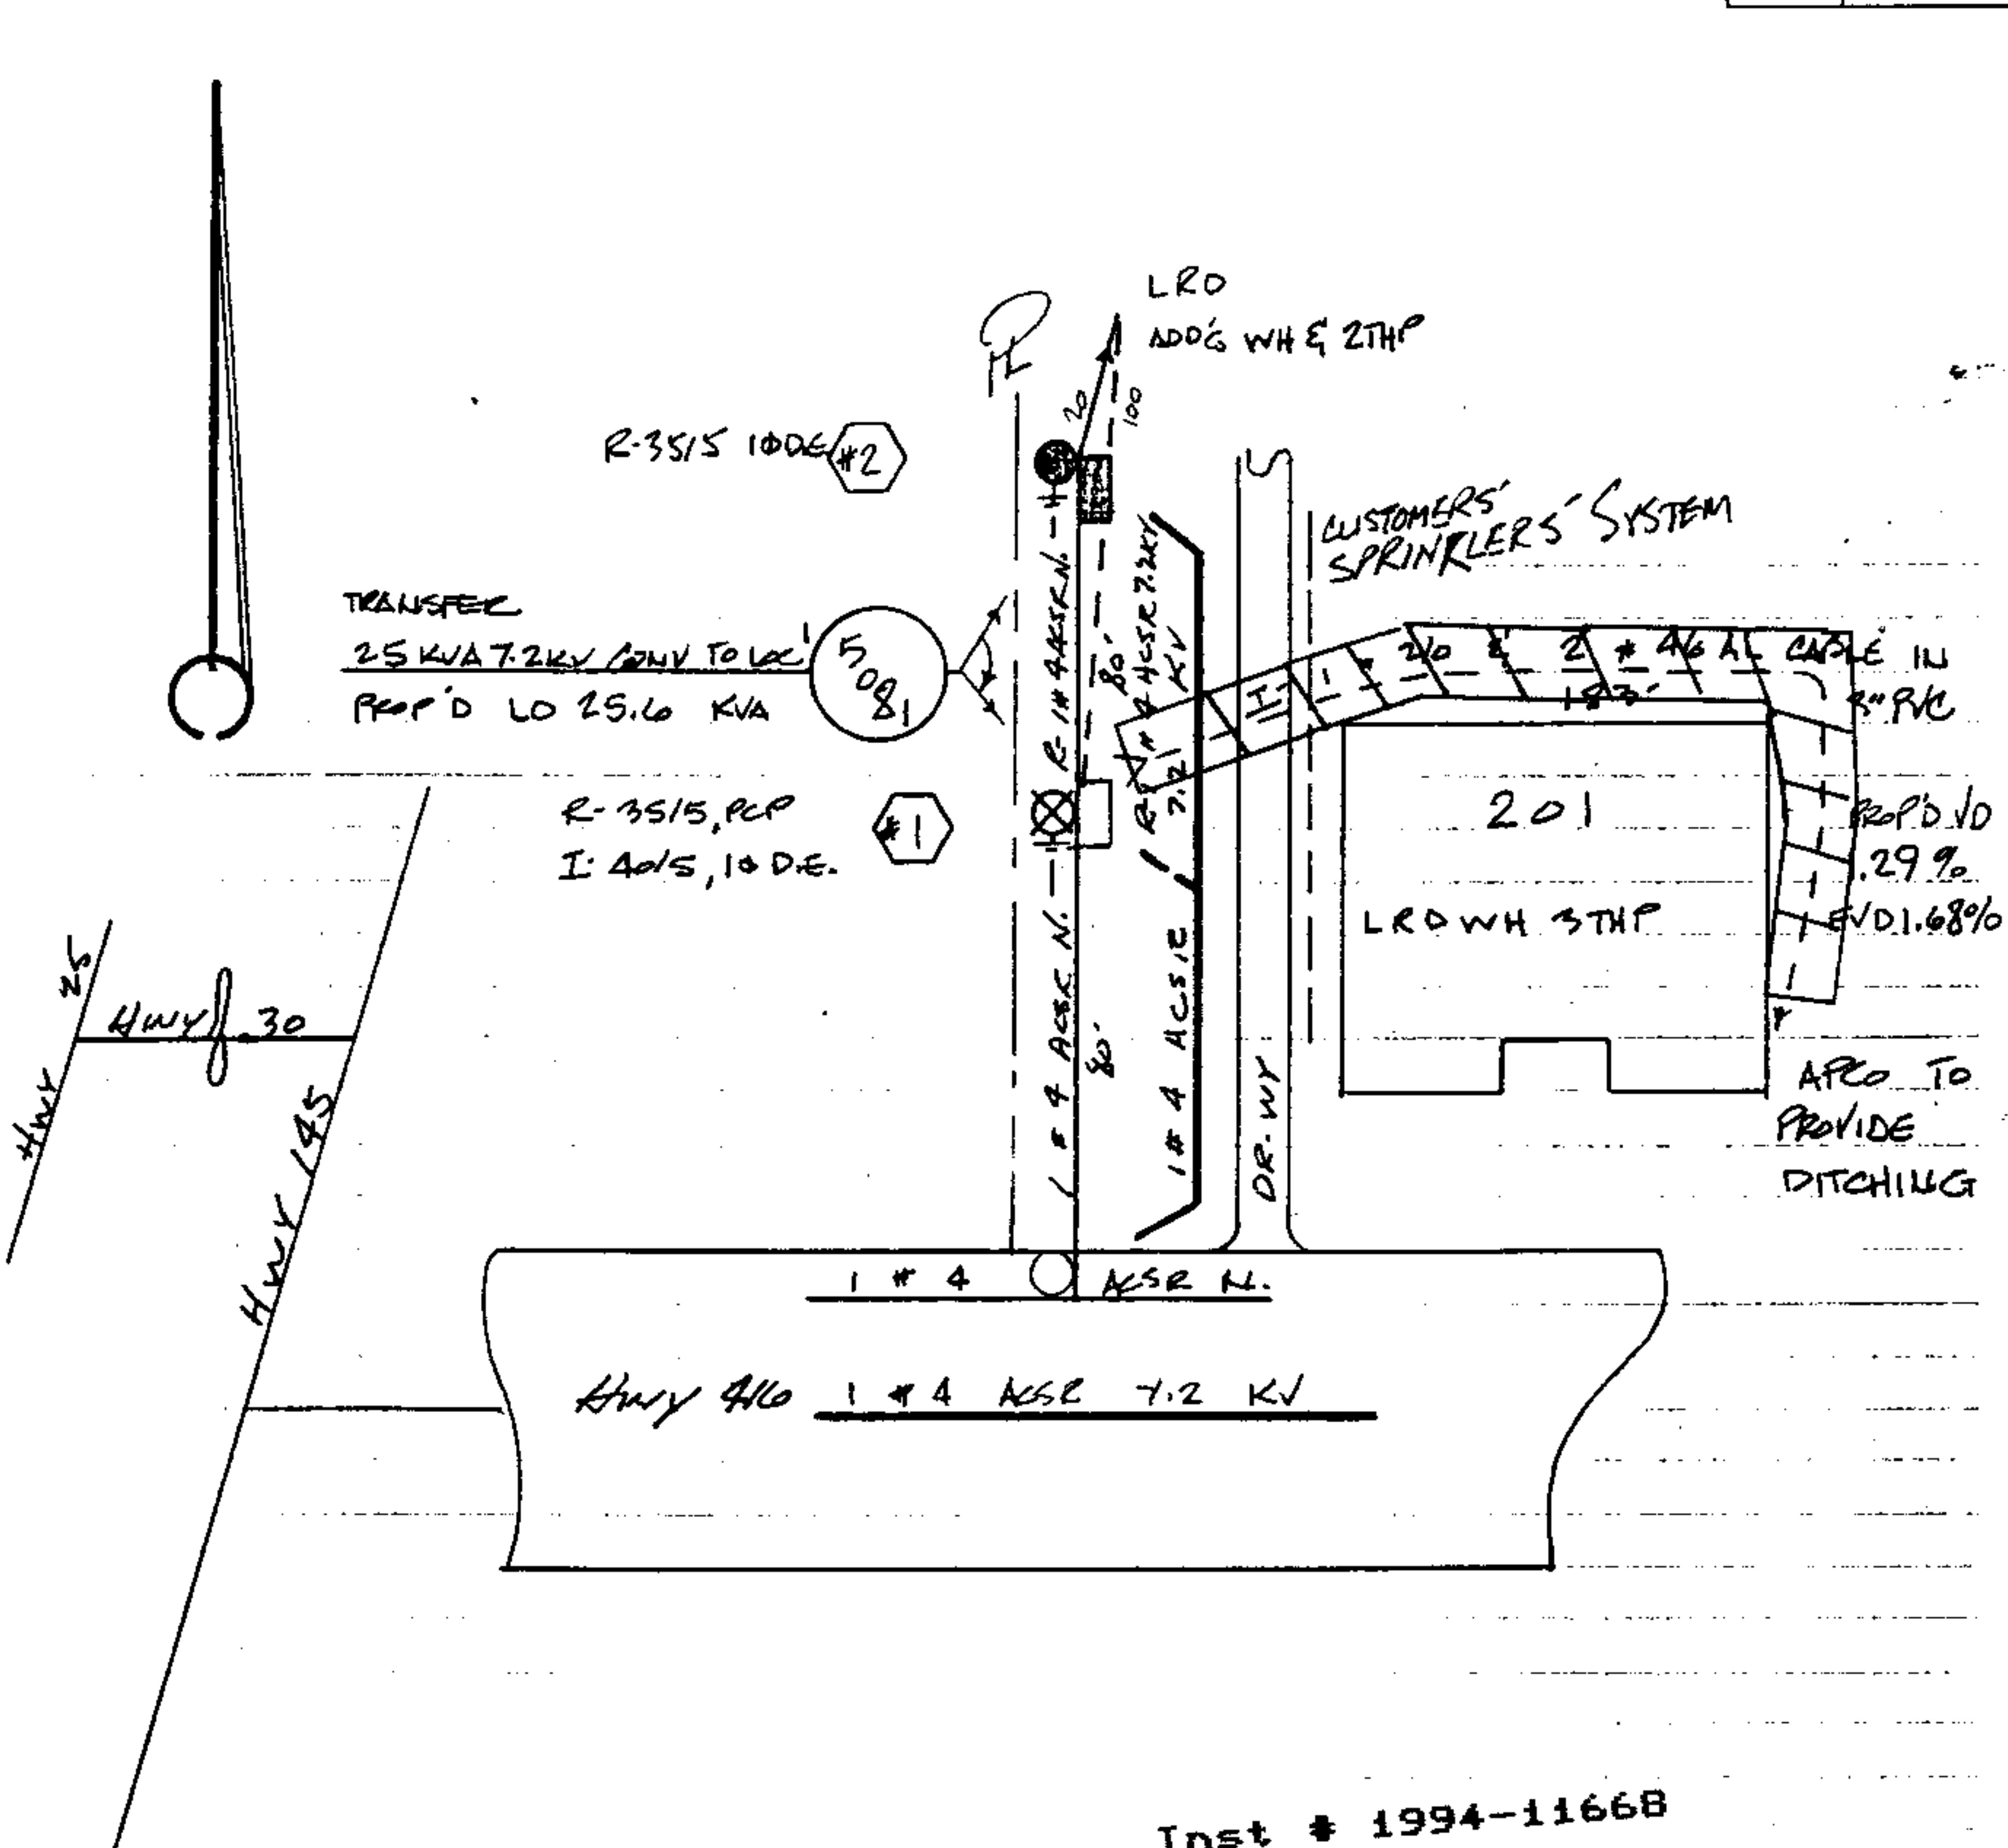 LRD
ADD'G WH & 2THP
20
100
R-35/5 1ΦDE
#2
CUSTOMERS'
SPRINKLERS' SYSTEM
TRANSFER
25 KVA 7.2KV CONV TO LOC
PROP'D LO 25.6 KVA
5081
80'
2/0 & 2 # 4/6 AL CABLE IN
183'
3" PVC
R-35/5, PCP
I-40/5, 1Φ D.E.
#1
201
PROP'D VD
.29%
FVD 1.68%
LRD WH 3 THP
1 # 4 ACSR N.
80'
1 # 4 ACSR
DR-WY
APCO TO
PROVIDE
DITCHING
HWY 25
HWY 30
HWY 145
1 # 4 ACSR N.
HWY 416 1 # 4 ACSR 7.2 KV
Inst # 1994-11668